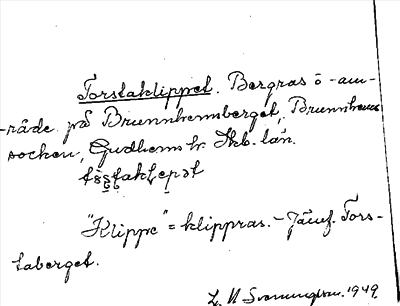 Torstaklippet. Bergras ö -om-
-råde på Brunnhemsberget, Brunnhems
socken, Gudhems hr. Skb. län.
"Klippe" = klippras. - Jämf. Tors-
taberget.
1949